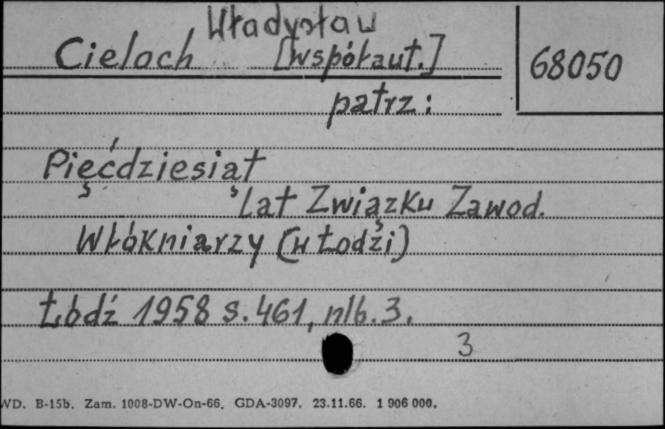 Władysław
Cieloch [współaut.]
68050
patrz:
Pięćdziesiąt
Lat Związku Zawod.
Włókniarzy (w Łodzi)
Łódź 1958 s. 461, nlb. 3.
3
WD. B-15b. Zam. 1008-DW-On-66. GDA-3097. 23.11.66. 1 906 000.